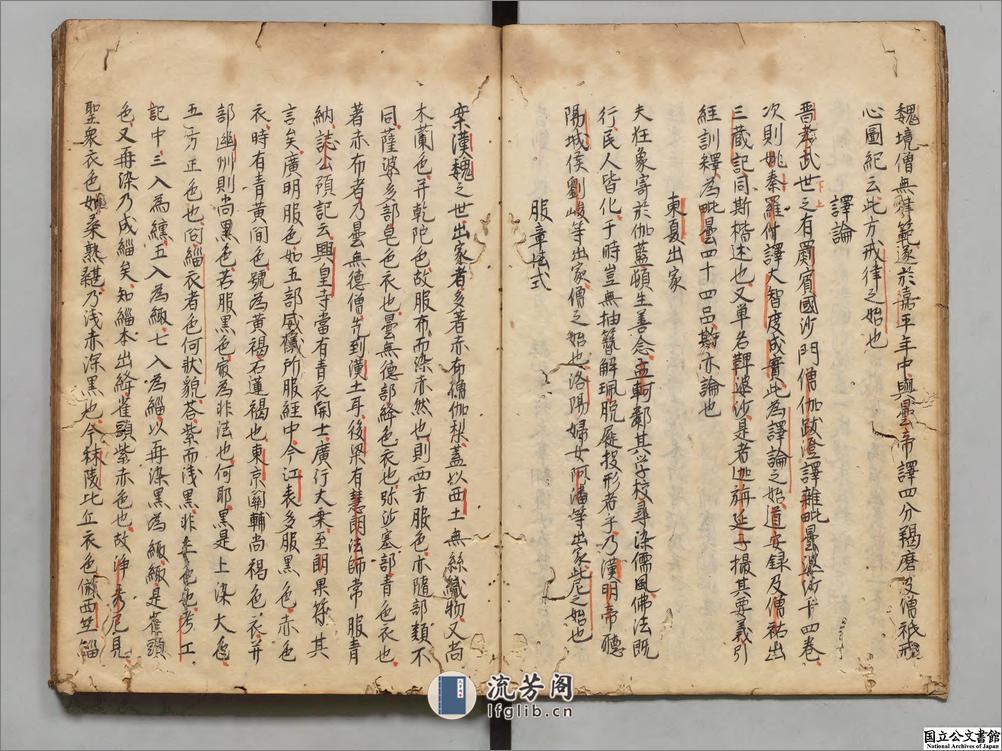 魏境僧無律範遂於嘉平年中與曇帝譯四分羯磨及僧祇戒
心圖紀云此方戒律之始也
譯論
晉孝武世之有罽賓國沙門僧伽跋澄譯雜毗曇婆沙十四卷
次則姚秦羅什譯大智度成實此為譯論之始道安録及僧祐出
三藏記同斯楷述也又單名鞞婆沙是者迦旃延子撮其要義引
經訓釋為毗曇四十四品斯亦論也
東夏出家
夫狂象寄於伽藍頤生善念孟軻鄰其学校尋染儒風佛法既
行民人皆化于時豈無抽簪解珮脱屣投形者乎乃漢明帝聽
陽城侯劉峻等出家僧之始也洛陽婦女阿潘等出家此尼之始也
服章法式
案漢魏之世出家者多著赤布僧伽梨蓋以西土無絲織物又尚
木蘭色并乾陀色故服布而染亦然也則西方服色亦隨部類不
同薩婆多部皂色衣也曇無德部絳色衣也弥沙塞部青色衣也
著赤布者乃曇無德僧先到漢土耳後果有慧朗法師常服青
納誌公預記云興皇寺當有青衣開士廣行大乘至朗果符其
言矣廣明服色如五部威儀所服經中今江表多服黑色赤色
衣時有青黄間色號為黄褐石蓮褐也東京關輔尚褐色衣并
部幽州則尚黑色若服黑色最為非法也何耶黑是上染大色
五方正色也問緇衣者色何狀貌荅紫而浅黑非正色也考工
記中三入為纁五入為緅七入為緇以再染黑為緅緅是雀頭
色又再染乃成緇矣知緇本出絳雀頭紫赤色也故浄秀尼見
聖衆衣色如桑熟椹乃浅赤深黑也今秣陵比丘衣色倣西竺緇
流芳阁
lfglib.cn
国立公文書館
National Archives of Japan